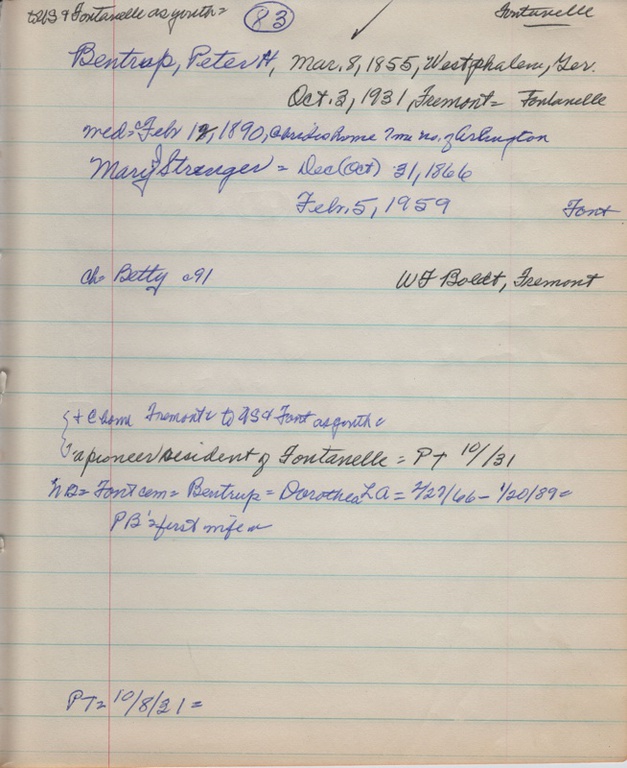 to US & Fontanelle as youth =
83
Fontanelle
Bentrup, Peter H, Mar. 8, 1855, Westphalem, Ger.
Oct. 3, 1931, Fremont = Fontanelle
med = Feb 12, 1890, brides home 7 mi no. of Arlington
Mary Stranger = Dec (Oct) 31, 1866
Febr. 5, 1959 Font
ch = Betty 91 WF Boldt, Fremont
+ C home Fremont to US & Font as youth
"a pioneer resident of Fontanelle = PT 10/31
NB = Font cem = Bentrup = Dorothea L A = 2/27/66 - 1/20/89 =
PB's first wife
PT = 10/8/31 =